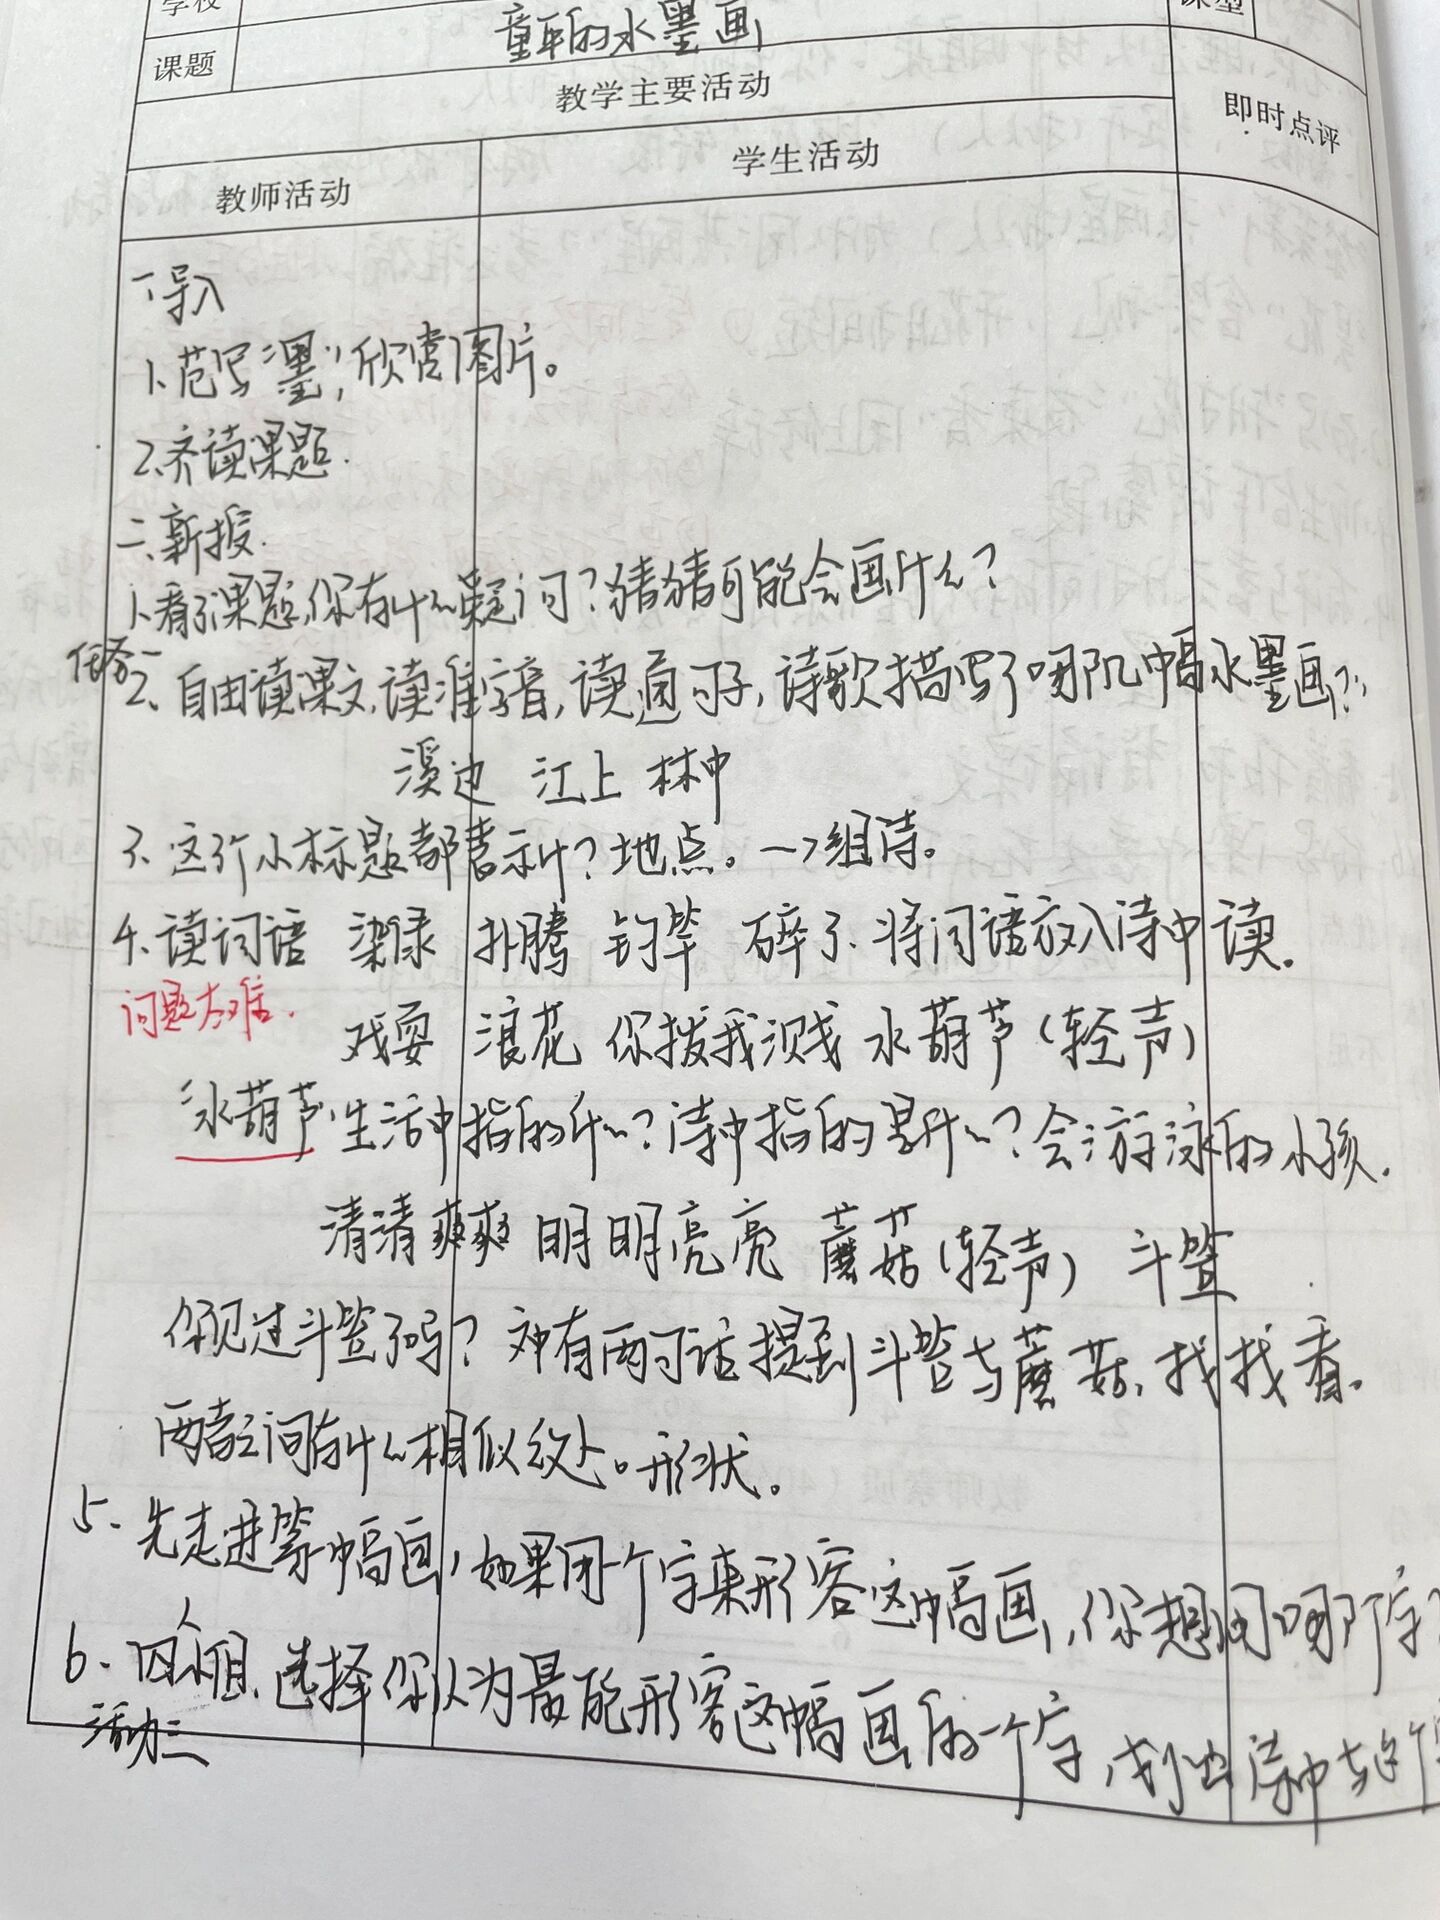 学校
课型
课题
童年的水墨画
教学主要活动
即时点评
教师活动
学生活动
一、导入
1、范写“墨”,欣赏图片。
2、齐读课题.
二、新授.
1、看了课题,你有什么疑问?猜猜可能会画什么?
任务一
2、自由读课文,读准字音,读通句子,诗歌描写了哪几幅水墨画?
溪边 江上 林中
3、这个小标题都表示什?地点。—>组诗。
4、读词语 染绿 扑腾 钓竿 碎了、将词语放入诗中读.
问题太难.
戏耍 浪花 你拨我溅 水葫芦(轻声)
“水葫芦”生活中指的什么?诗中指的是什么?会游泳的小孩.
清清爽爽 明明亮亮 蘑菇(轻声) 斗笠
你见过斗笠了吗?文中有两句话提到斗笠与蘑菇,找找看.
两者之间有什么相似之处。形状。
5、先走进第一幅画,如果用一个字来形容这幅画,你想用哪个字?
6、四人小组,选择你认为最能形容这幅画的一个字,划出诗中与这个
活动二